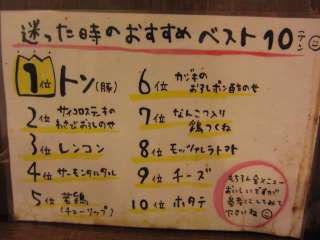 迷った時のおすすめベスト10
1位 トン(豚)
2位 サイコロステーキの
わさびおろしのせ
3位 レンコン
4位 サーモンタルタル
5位 若鶏
(チューリップ)
6位 カジキの
おろしポン酢のせ
7位 なんこつ入り
鶏つくね
8位 モッツァレラトマト
9位 チーズ
10位 ホタテ
もちろん全メニュー
おいしいですが
参考にしてみて
下さいね